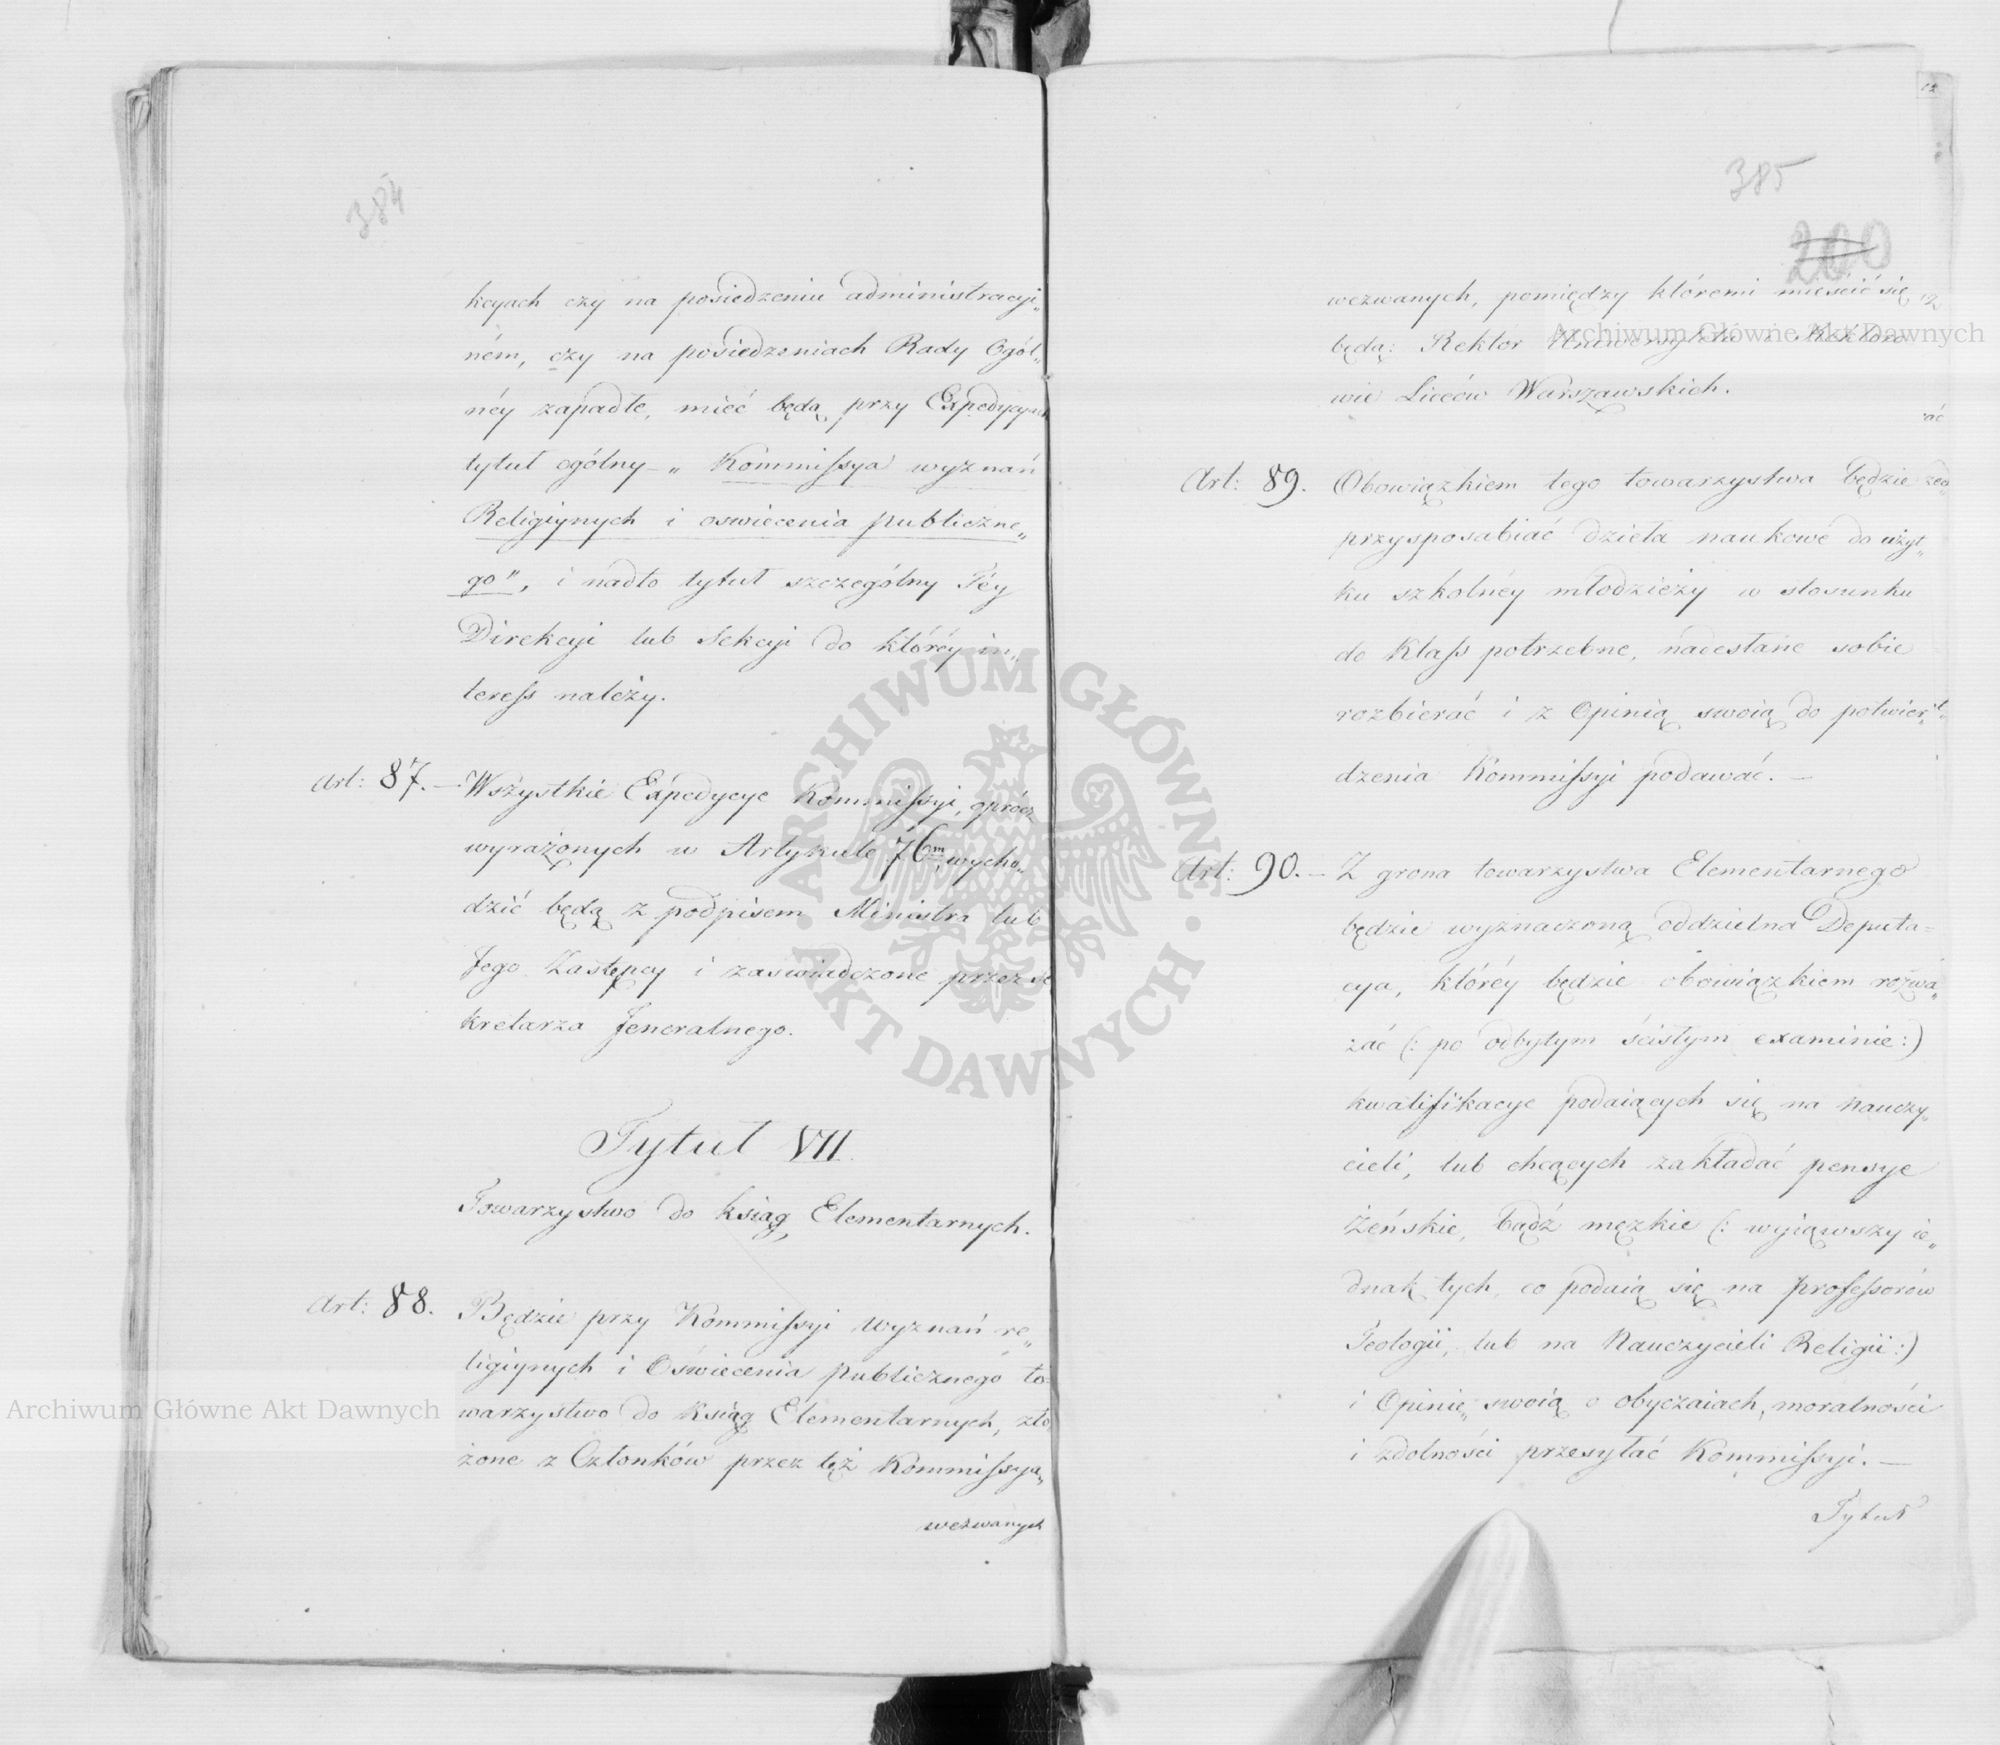 384
kcyach czy na posiedzeniu administracyi„
ném, czy na posiedzeniach Rady Ogól„
néy zapadłe, mieć będą przy Expedycyach
tytuł ogólny – „ Kommissya wyznań
Religiynych i oswiecenia publiczne„
go", i nadto tytuł szczególny Téy
Direkcyi lub Sekcyi do któréy in„
teress należy.
Art: 87. – Wszystkie Expedycye Kommissyi, oprócz
wyrażonych w Artykule 76m, wycho„
dzić będą z podpisem Ministra lub
Jego Zastępcy i zaswiadczone przez Se
kretarza Jeneralnego.
Tytuł VII
Towarzystwo do ksiąg Elementarnych.
Art: 88. Będzie przy Kommissyi Wyznań re„
ligiynych i Oświecenia publicznego to
warzystwo do Ksiąg Elementarnych, zło
żone z Członków przez też Kommissyą„
wezwanych
385
200
wezwanych, pomiędzy któremi mieścić się
będą: Rektor Uniwersytetu i Rektoro
wie Liceów Warszawskich.
Art: 89. Obowiązkiem tego towarzystwa będzie
przysposabiać dzieła naukowe do użyt„
ku szkolnéy młodzieży w stosunku
do Klass potrzebne, nadesłane sobie
rozbierać i z Opinią swoią do potwier„
dzenia Kommissyi podawać. –
Art: 90. – Z grona towarzystwa Elementarnego
będzie wyznaczoną oddzielna Deputa=
cya, któréy będzie obowiązkiem rozwa„
żać (: po odbytym ścisłym examinie :)
kwalifikacye podaiących się na Nauczy„
cieli, lub chcących zakładać pensye
Żeńskie, bądź męzkie (: wyiąwszy ie„
dnak tych, co podaią się na professorów
Teologii, lub na Nauczycieli Religii :)
i Opinię swoią o obyczaiach, moralności
i zdolności przesyłać Kommissyi. –
Tytuł
Archiwum Główne Akt Dawnych
Archiwum Główne Akt Dawnych
ARCHIWUM GŁÓWNE · AKT DAWNYCH ·